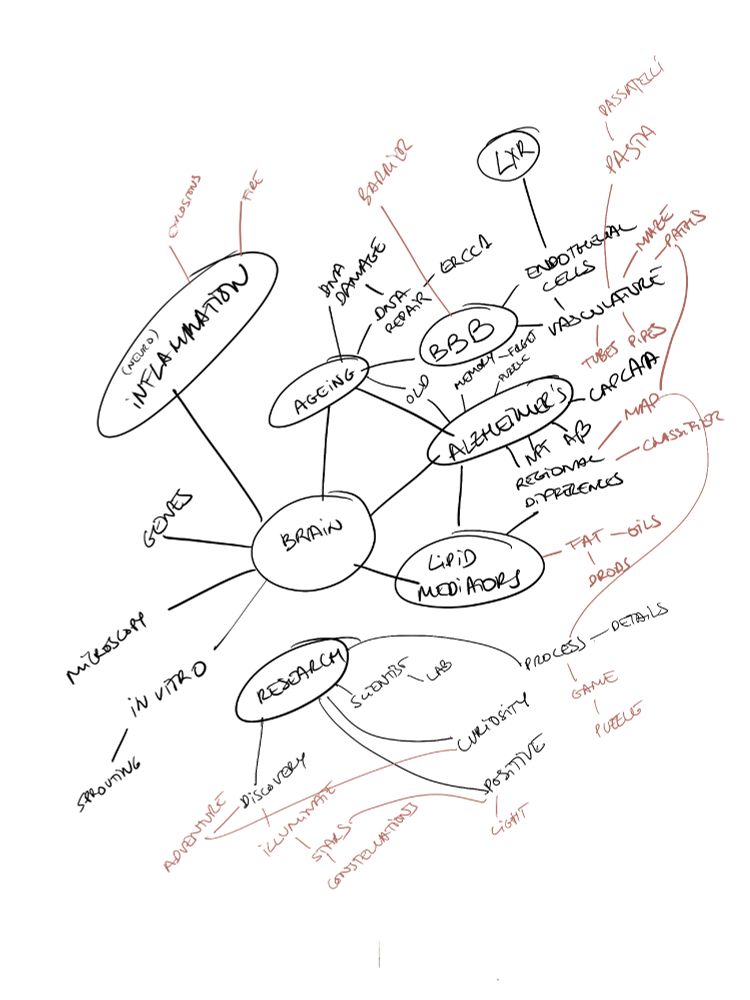 PASSATELLI
PASTA
LXR
BARRIER
EXPLOSIONS
FIRE
DNA
DAMAGE
ERCC1
DNA
REPAIR
ENDOTHELIAL
CELLS
MAZE
PATHS
VASCULATURE
(NEURO)
INFLAMMATION
BBB
TUBES
PIPES
MEMORY
FORGET
PUZZLE
AGEING
OLD
ALZHEIMER'S
MAP
CLASSIFIER
NFT
Aβ
REGIONAL
DIFFERENCES
GENES
BRAIN
LIPID
MEDIATORS
FAT
OILS
DROPS
MICROSCOPY
IN VITRO
SPROUTING
RESEARCH
SCIENTIST
LAB
PROCESS
DETAILS
GAME
PUZZLE
CURIOSITY
POSITIVE
DISCOVERY
ADVENTURE
ILLUMINATE
STARS
CONSTELLATIONS
LIGHT